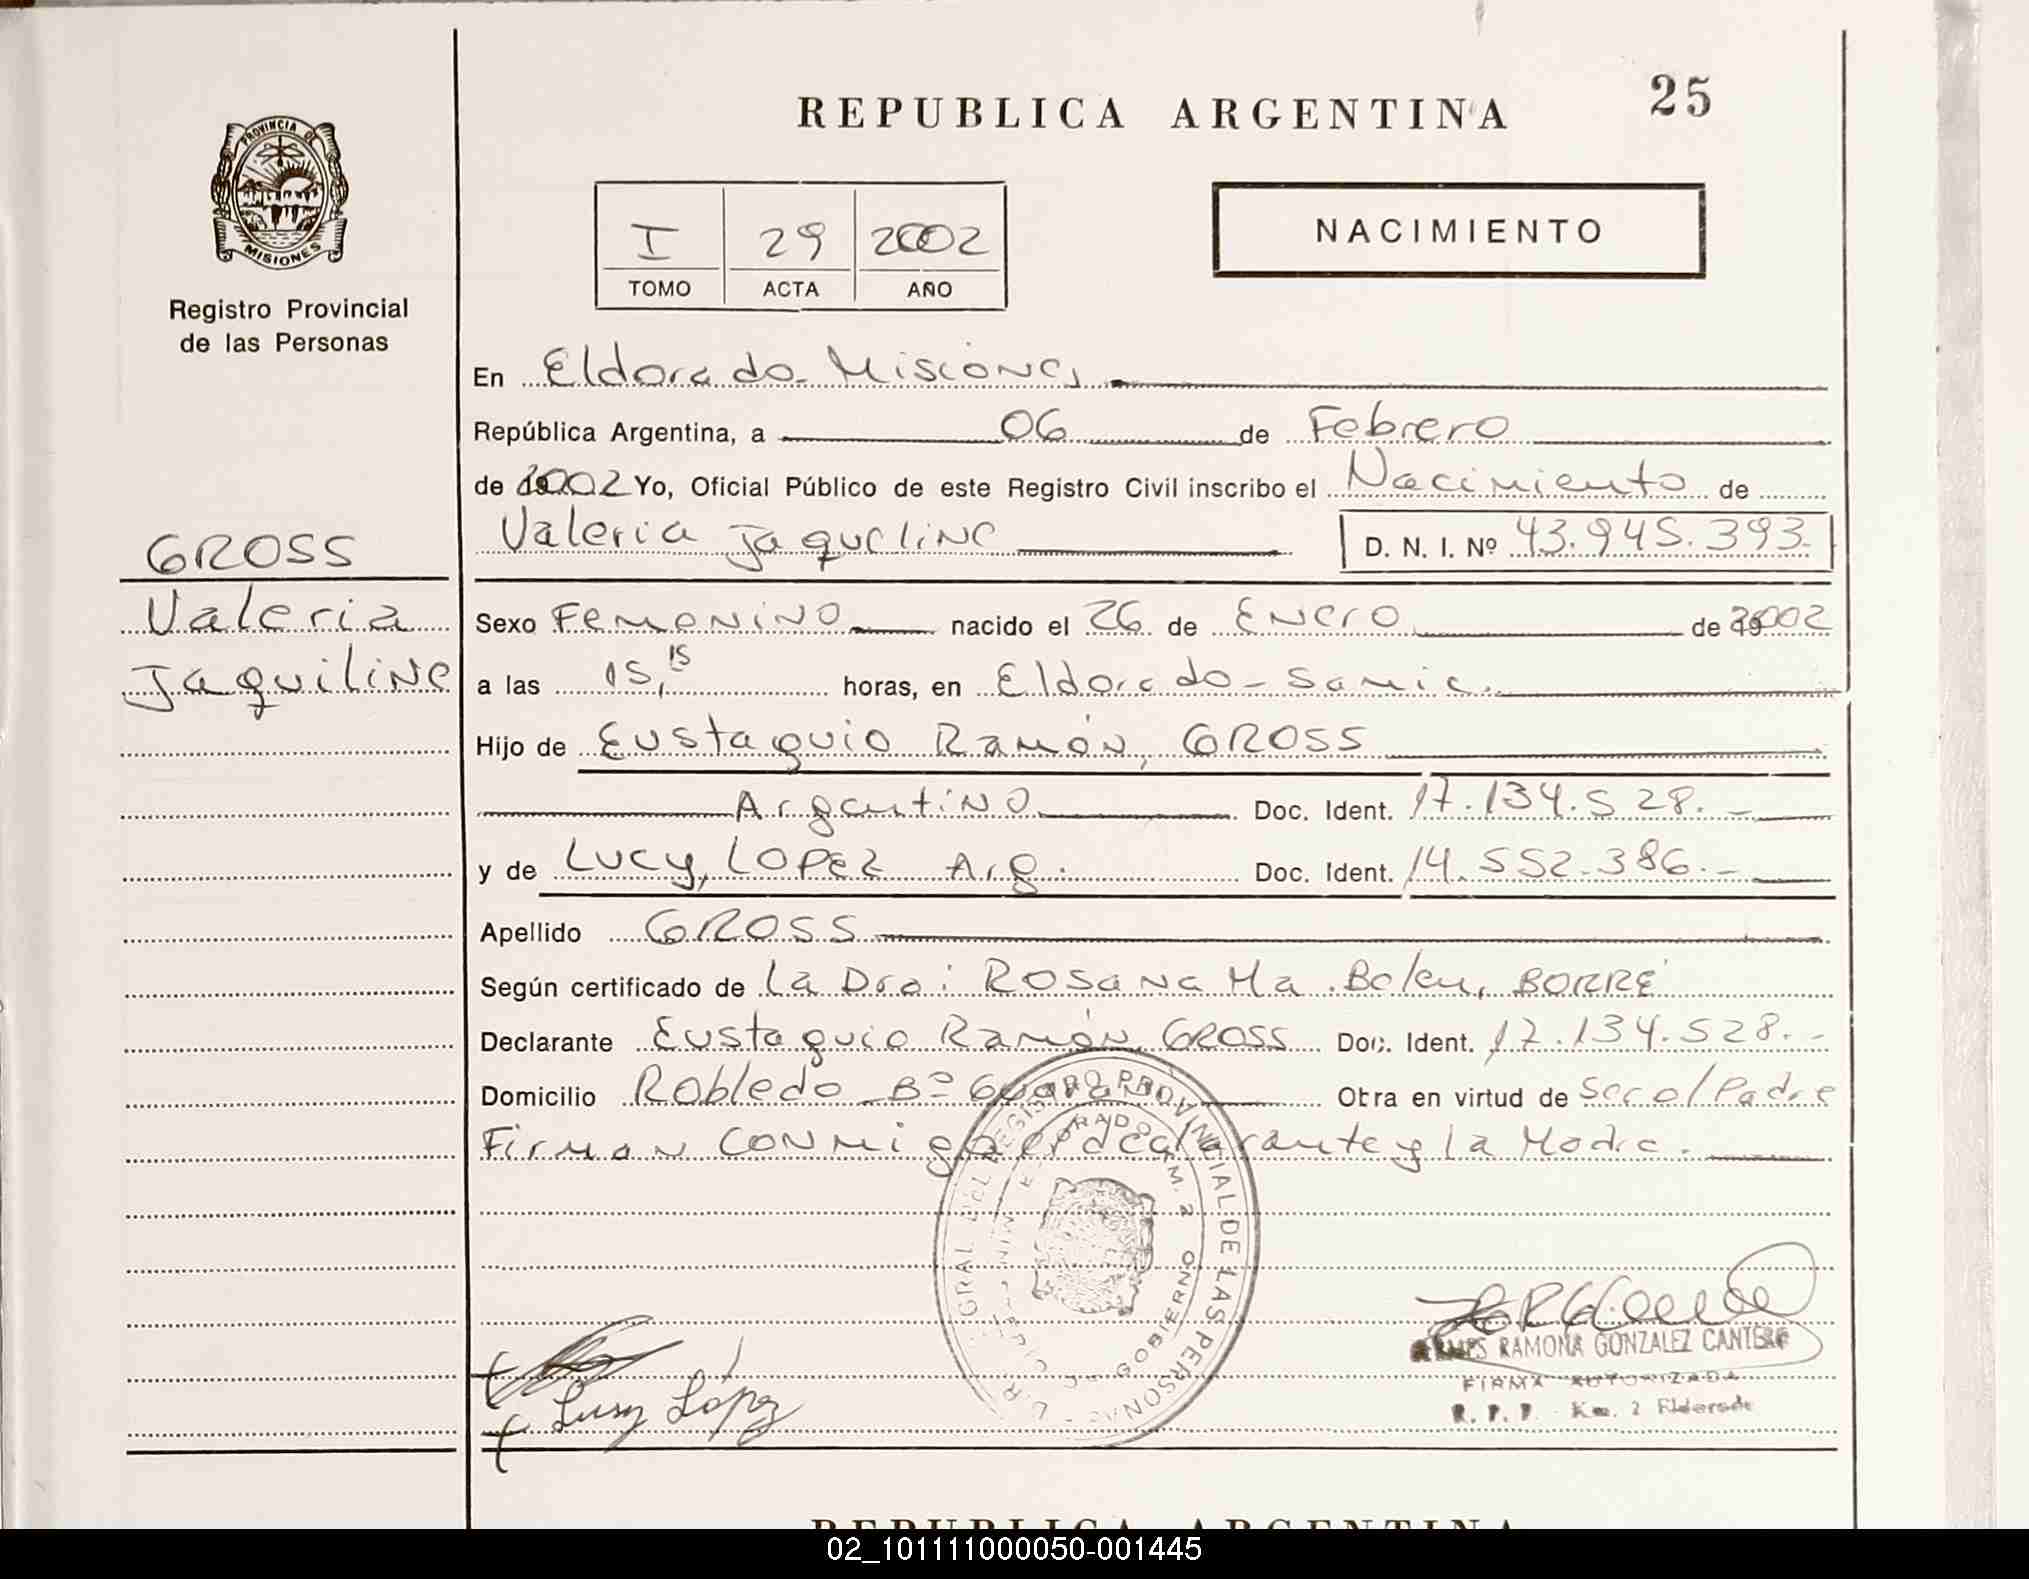 REPUBLICA ARGENTINA
25
PROVINCIA DE
MISIONES
Registro Provincial
de las Personas
I 29 2002
TOMO ACTA AÑO
NACIMIENTO
En Eldorado - Misiones
República Argentina, a 06 de Febrero
de 2002 Yo, Oficial Público de este Registro Civil inscribo el Nacimiento de
Valeria Jaqueline D. N. I. Nº 43.945.393.
GROSS
Valeria
Jaquiline
Sexo Femenino nacido el 26 de Enero de 2002
a las 15,15 horas, en Eldorado - Samic.
Hijo de Eustaquio Ramón, GROSS
Argentino Doc. Ident. 17.134.528.-
y de Lucy, LOPEZ Arg. Doc. Ident. 14.552.386.-
Apellido GROSS
Según certificado de La Dra: Rosana Ma. Belen, BORRE
Declarante Eustaquio Ramón, GROSS Doc. Ident. 17.134.528.-
Domicilio Robledo - Bº Otra en virtud de ser el Padre
Firman conmigo el declarante y la Madre.
REGISTRO PROVINCIAL DE LAS PERSONAS
GOBIERNO
Lucy López
RAMONA GONZALEZ CANTERO
FIRMA AUTORIZADA
R. P. P. Km. 2 Eldorado
REPUBLICA ARGENTINA
02_101111000050-001445